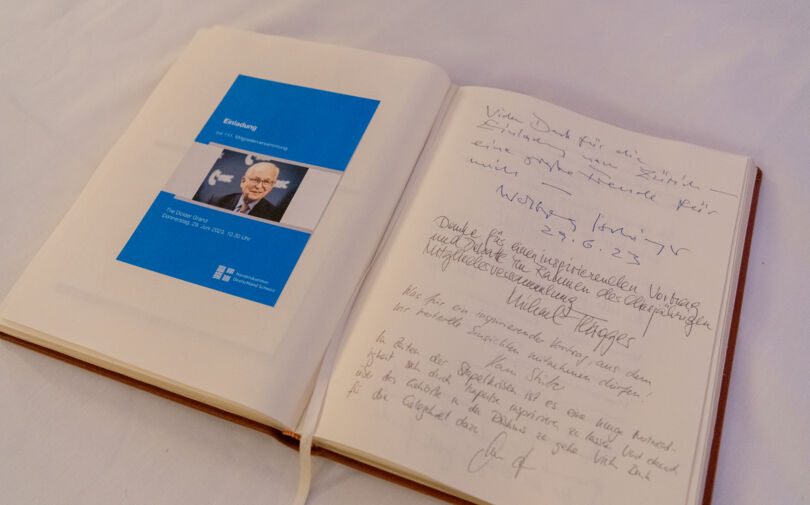 Einladung
zur 111. Mitgliederversammlung
The Dolder Grand
Donnerstag, 29. Juni 2023, 10.30 Uhr
Handelskammer
Deutschland Schweiz
Vielen Dank für die
Einladung nach Zürich –
eine große Freude für
mich –
Wolfgang
29.6.23
Danke für einen inspirierenden Vortrag
und Debatte im Rahmen des diesjährigen
Mitgliederversammlung
Michael
Was für ein inspirierender Vortrag, aus dem
wir wertvolle Einsichten mitnehmen dürfen!
Karin
In Zeiten der Stapelkrisen ist es eine
sich durch Impulse inspirieren zu lassen und durch
das Gehörte in die Diskussion zu gehen. Vielen Dank
für die Gelegenheit dazu.